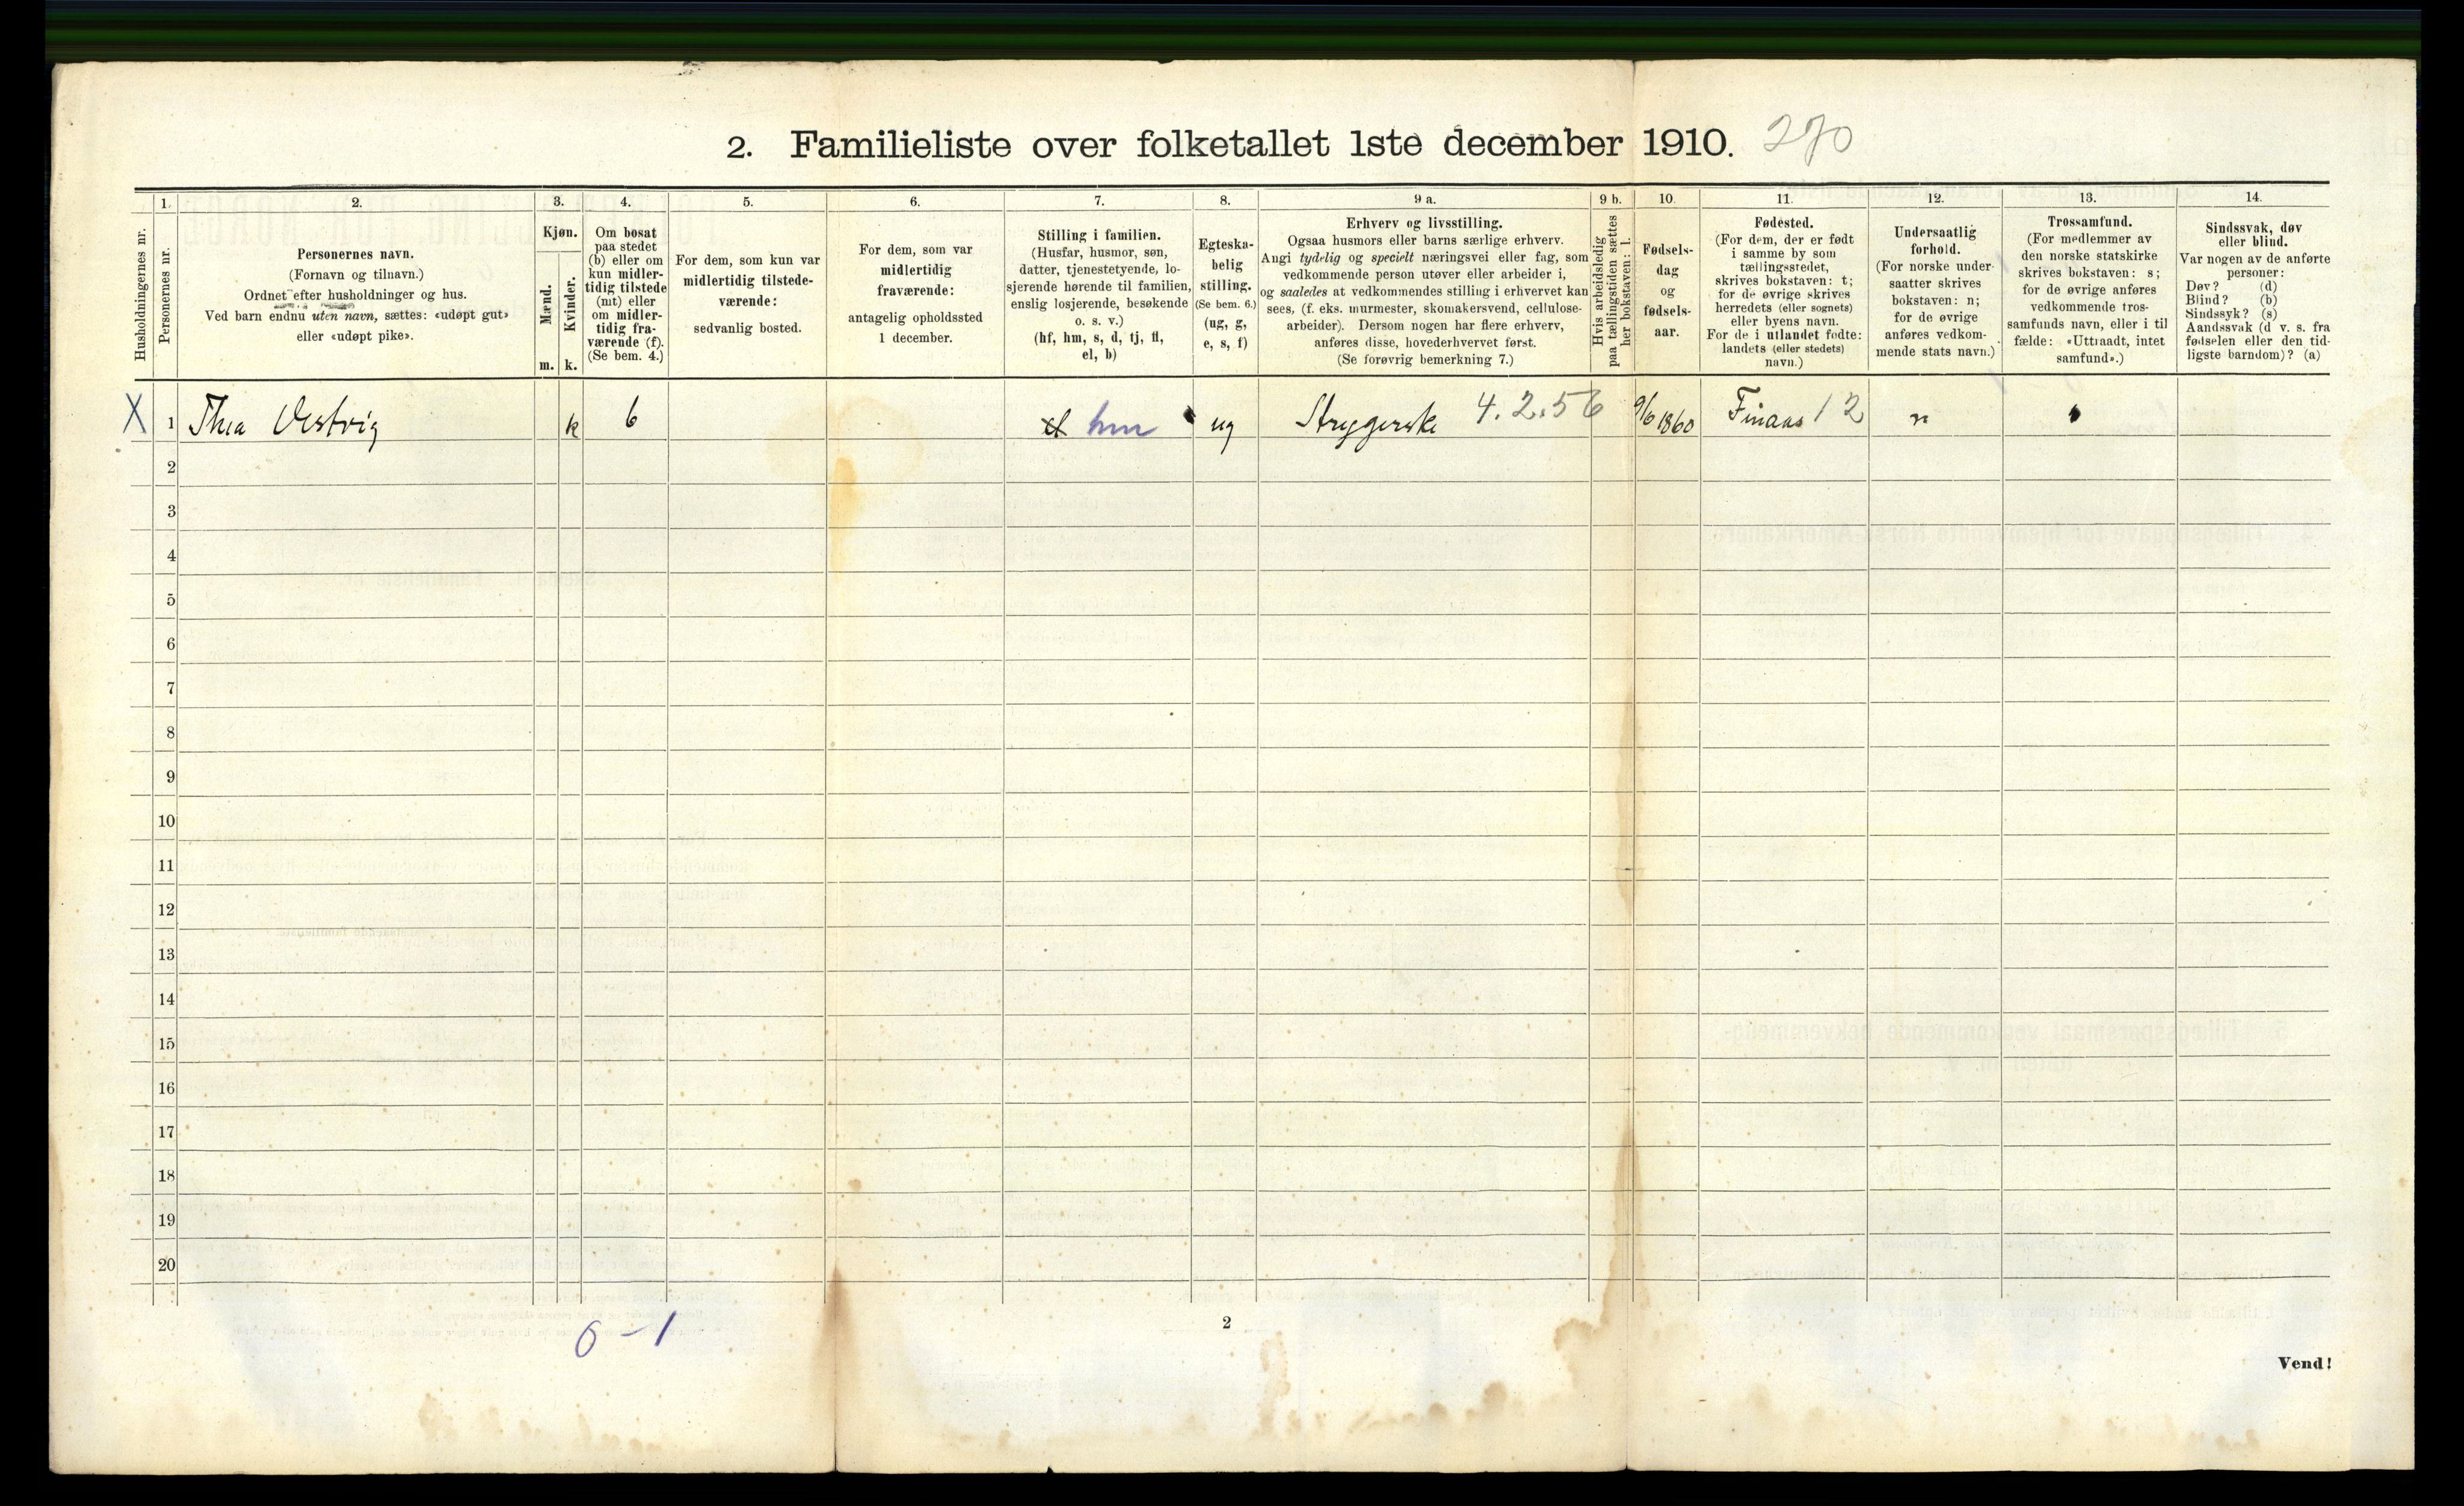 2. Familieliste over folketallet 1ste december 1910. 270
Husholdningernes nr.
1.
Personernes nr.
2.
Personernes navn.
(Fornavn og tilnavn.)
Ordnet efter husholdninger og hus.
Ved barn endnu uten navn, sættes: «udøpt gut»
eller «udøpt pike».
3.
Kjøn.
Mænd.
Kvinder.
m. k.
4.
Om bosat
paa stedet
(b) eller om
kun midler-
tidig tilstede
(mt) eller
om midler-
tidig fra-
værende (f).
(Se bem. 4.)
5.
For dem, som kun var
midlertidig tilstede-
værende:
sedvanlig bosted.
6.
For dem, som var
midlertidig
fraværende:
antagelig opholdssted
1 december.
7.
Stilling i familien.
(Husfar, husmor, søn,
datter, tjenestetyende, lo-
sjerende hørende til familien,
enslig losjerende, besøkende
o. s. v.)
(hf, hm, s, d, tj, fl,
el, b)
8.
Egteska-
belig
stilling.
(Se bem. 6.)
(ug, g,
e, s, f)
9 a.
Erhverv og livsstilling.
Ogsaa husmors eller barns særlige erhverv.
Angi tydelig og specielt næringsvei eller fag, som
vedkommende person utøver eller arbeider i,
og saaledes at vedkommendes stilling i erhvervet kan
sees, (f. eks. murmester, skomakersvend, cellulose-
arbeider). Dersom nogen har flere erhverv,
anføres disse, hovederhvervet først.
(Se forøvrig bemerkning 7.)
9 b.
Hvis arbeidsledig
paa tællingstiden sættes
her bokstaven: l.
10.
Fødsels-
dag
og
fødsels-
aar.
11.
Fødested.
(For dem, der er født
i samme by som
tællingsstedet,
skrives bokstaven: t;
for de øvrige skrives
herredets (eller sognets)
eller byens navn.
For de i utlandet fødte:
landets (eller stedets)
navn.)
12.
Undersaatlig
forhold.
(For norske under-
saatter skrives
bokstaven: n;
for de øvrige
anføres vedkom-
mende stats navn.)
13.
Trossamfund.
(For medlemmer av
den norske statskirke
skrives bokstaven: s;
for de øvrige anføres
vedkommende tros-
samfunds navn, eller i til
fælde: «Uttraadt, intet
samfund».)
14.
Sindssvak, døv
eller blind.
Var nogen av de anførte
personer:
Døv? (d)
Blind? (b)
Sindssyk? (s)
Aandssvak (d v. s. fra
fødselen eller den tid-
ligste barndom)? (a)
X 1 Thea Vestvig k b el hm ug Strygerske 4.2.56 9/6 1860 Finaas 12 n s
2
3
4
5
6
7
8
9
10
11
12
13
14
15
16
17
18
19
20
0-1
2
Vend!